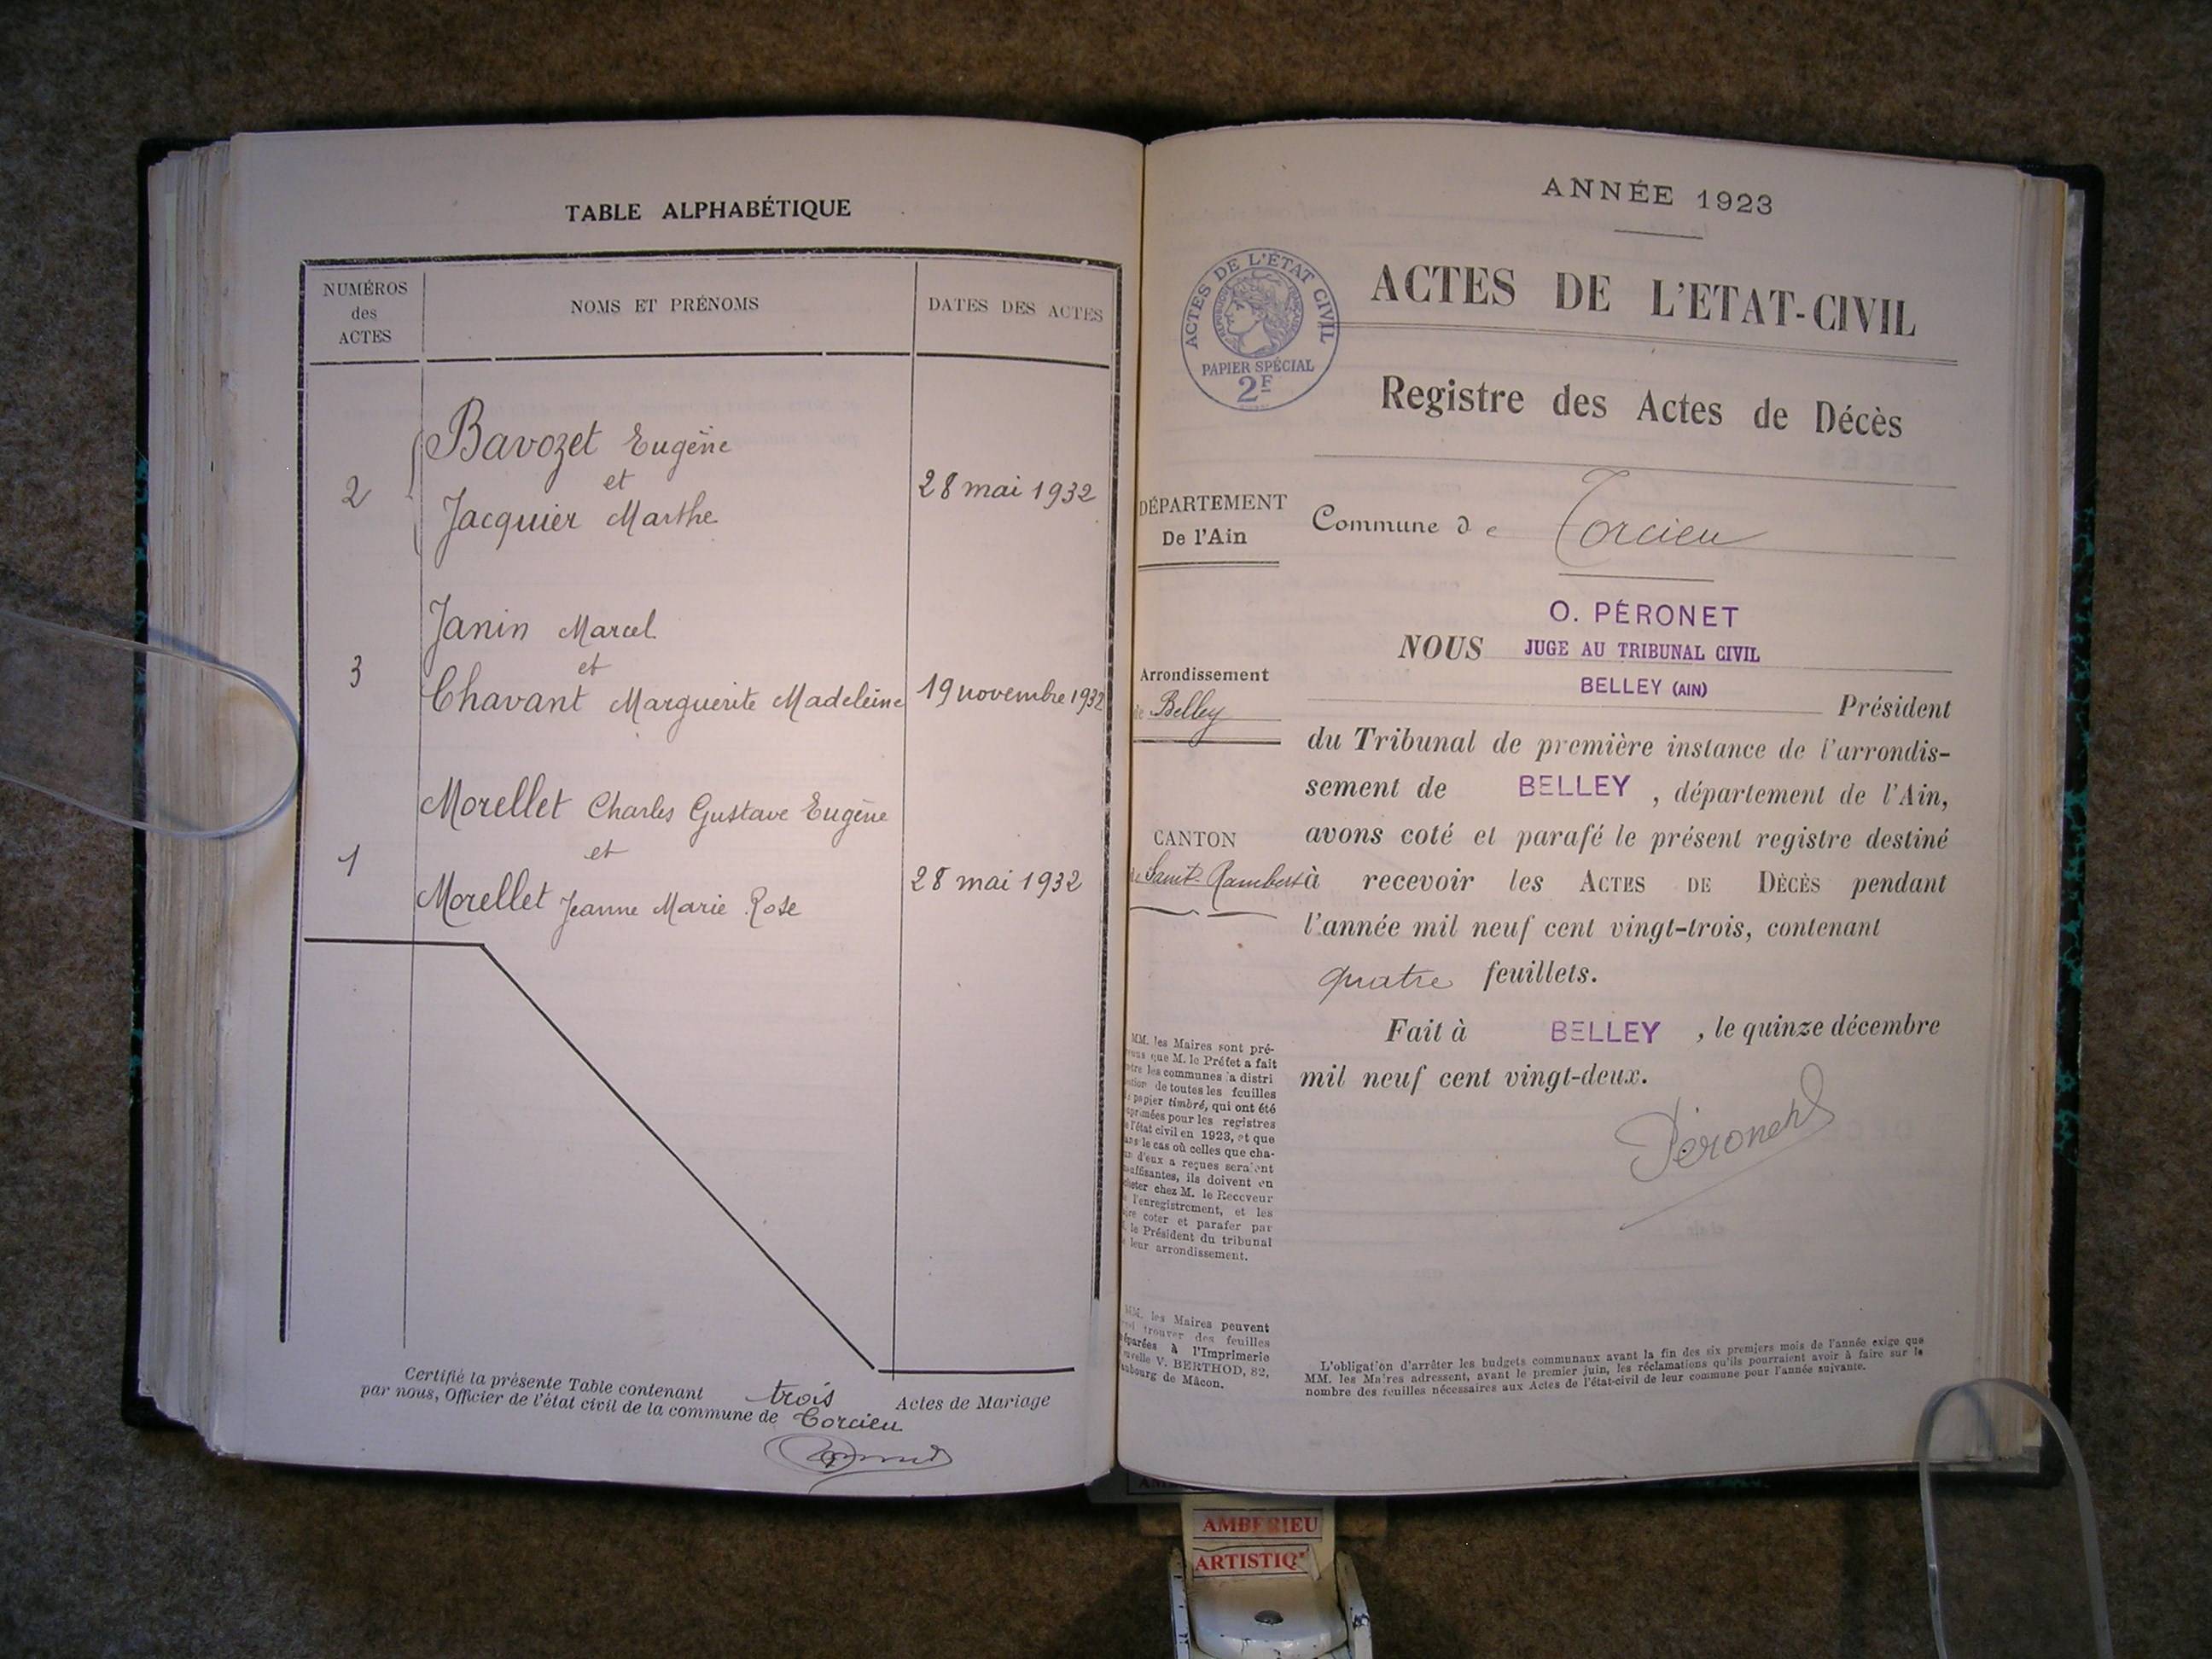 TABLE ALPHABÉTIQUE
NUMÉROS
des
ACTES
NOMS ET PRÉNOMS
DATES DES ACTES
Bavozet Eugène
et
2
28 mai 1932
Jacquier Marthe
Janin Marcel
et
3
Chavant Marguerite Madeleine
19 novembre 1932
Morellet Charles Gustave Eugène
et
1
28 mai 1932
Morellet Jeanne Marie Rose
Certifié la présente Table contenant trois Actes de Mariage
par nous, Officier de l'état civil de la commune de Torcieu
ANNÉE 1923
ACTES DE L'ÉTAT CIVIL
RÉPUBLIQUE FRANÇAISE
PAPIER SPÉCIAL
2F
ACTES DE L'ETAT-CIVIL
Registre des Actes de Décès
DÉPARTEMENT
De l'Ain
Commune de Torcieu
Arrondissement
de Belley
CANTON
de Saint-Rambert
O. PÉRONET
NOUS JUGE AU TRIBUNAL CIVIL
BELLEY (AIN)
Président
du Tribunal de première instance de l'arrondis-
sement de BELLEY, département de l'Ain,
avons coté et parafé le présent registre destiné
à recevoir les ACTES DE DÉCÈS pendant
l'année mil neuf cent vingt-trois, contenant
quatre feuillets.
Fait à BELLEY, le quinze décembre
mil neuf cent vingt-deux.
Péronet
MM. les Maires sont pré-
que M. le Préfet a fait
les communes la distri
de toutes les feuilles
papier timbré, qui ont été
pour les registres
l'état civil en 1923, et que
le cas où celles que cha-
d'eux a reçues seraient
ils doivent en
chez M. le Receveur
l'enregistrement, et les
coter et parafer par
le Président du tribunal
leur arrondissement.
les Maires peuvent
trouver des feuilles
à l'Imprimerie
V. BERTHOD, 82,
de Mâcon.
L'obligation d'arrêter les budgets communaux avant la fin des six premiers mois de l'année exige que
MM. les Maires adressent, avant le premier juin, les réclamations qu'ils pourraient avoir à faire sur le
nombre des feuilles nécessaires aux Actes de l'état-civil de leur commune pour l'année suivante.
AMBERIEU
ARTISTIQ